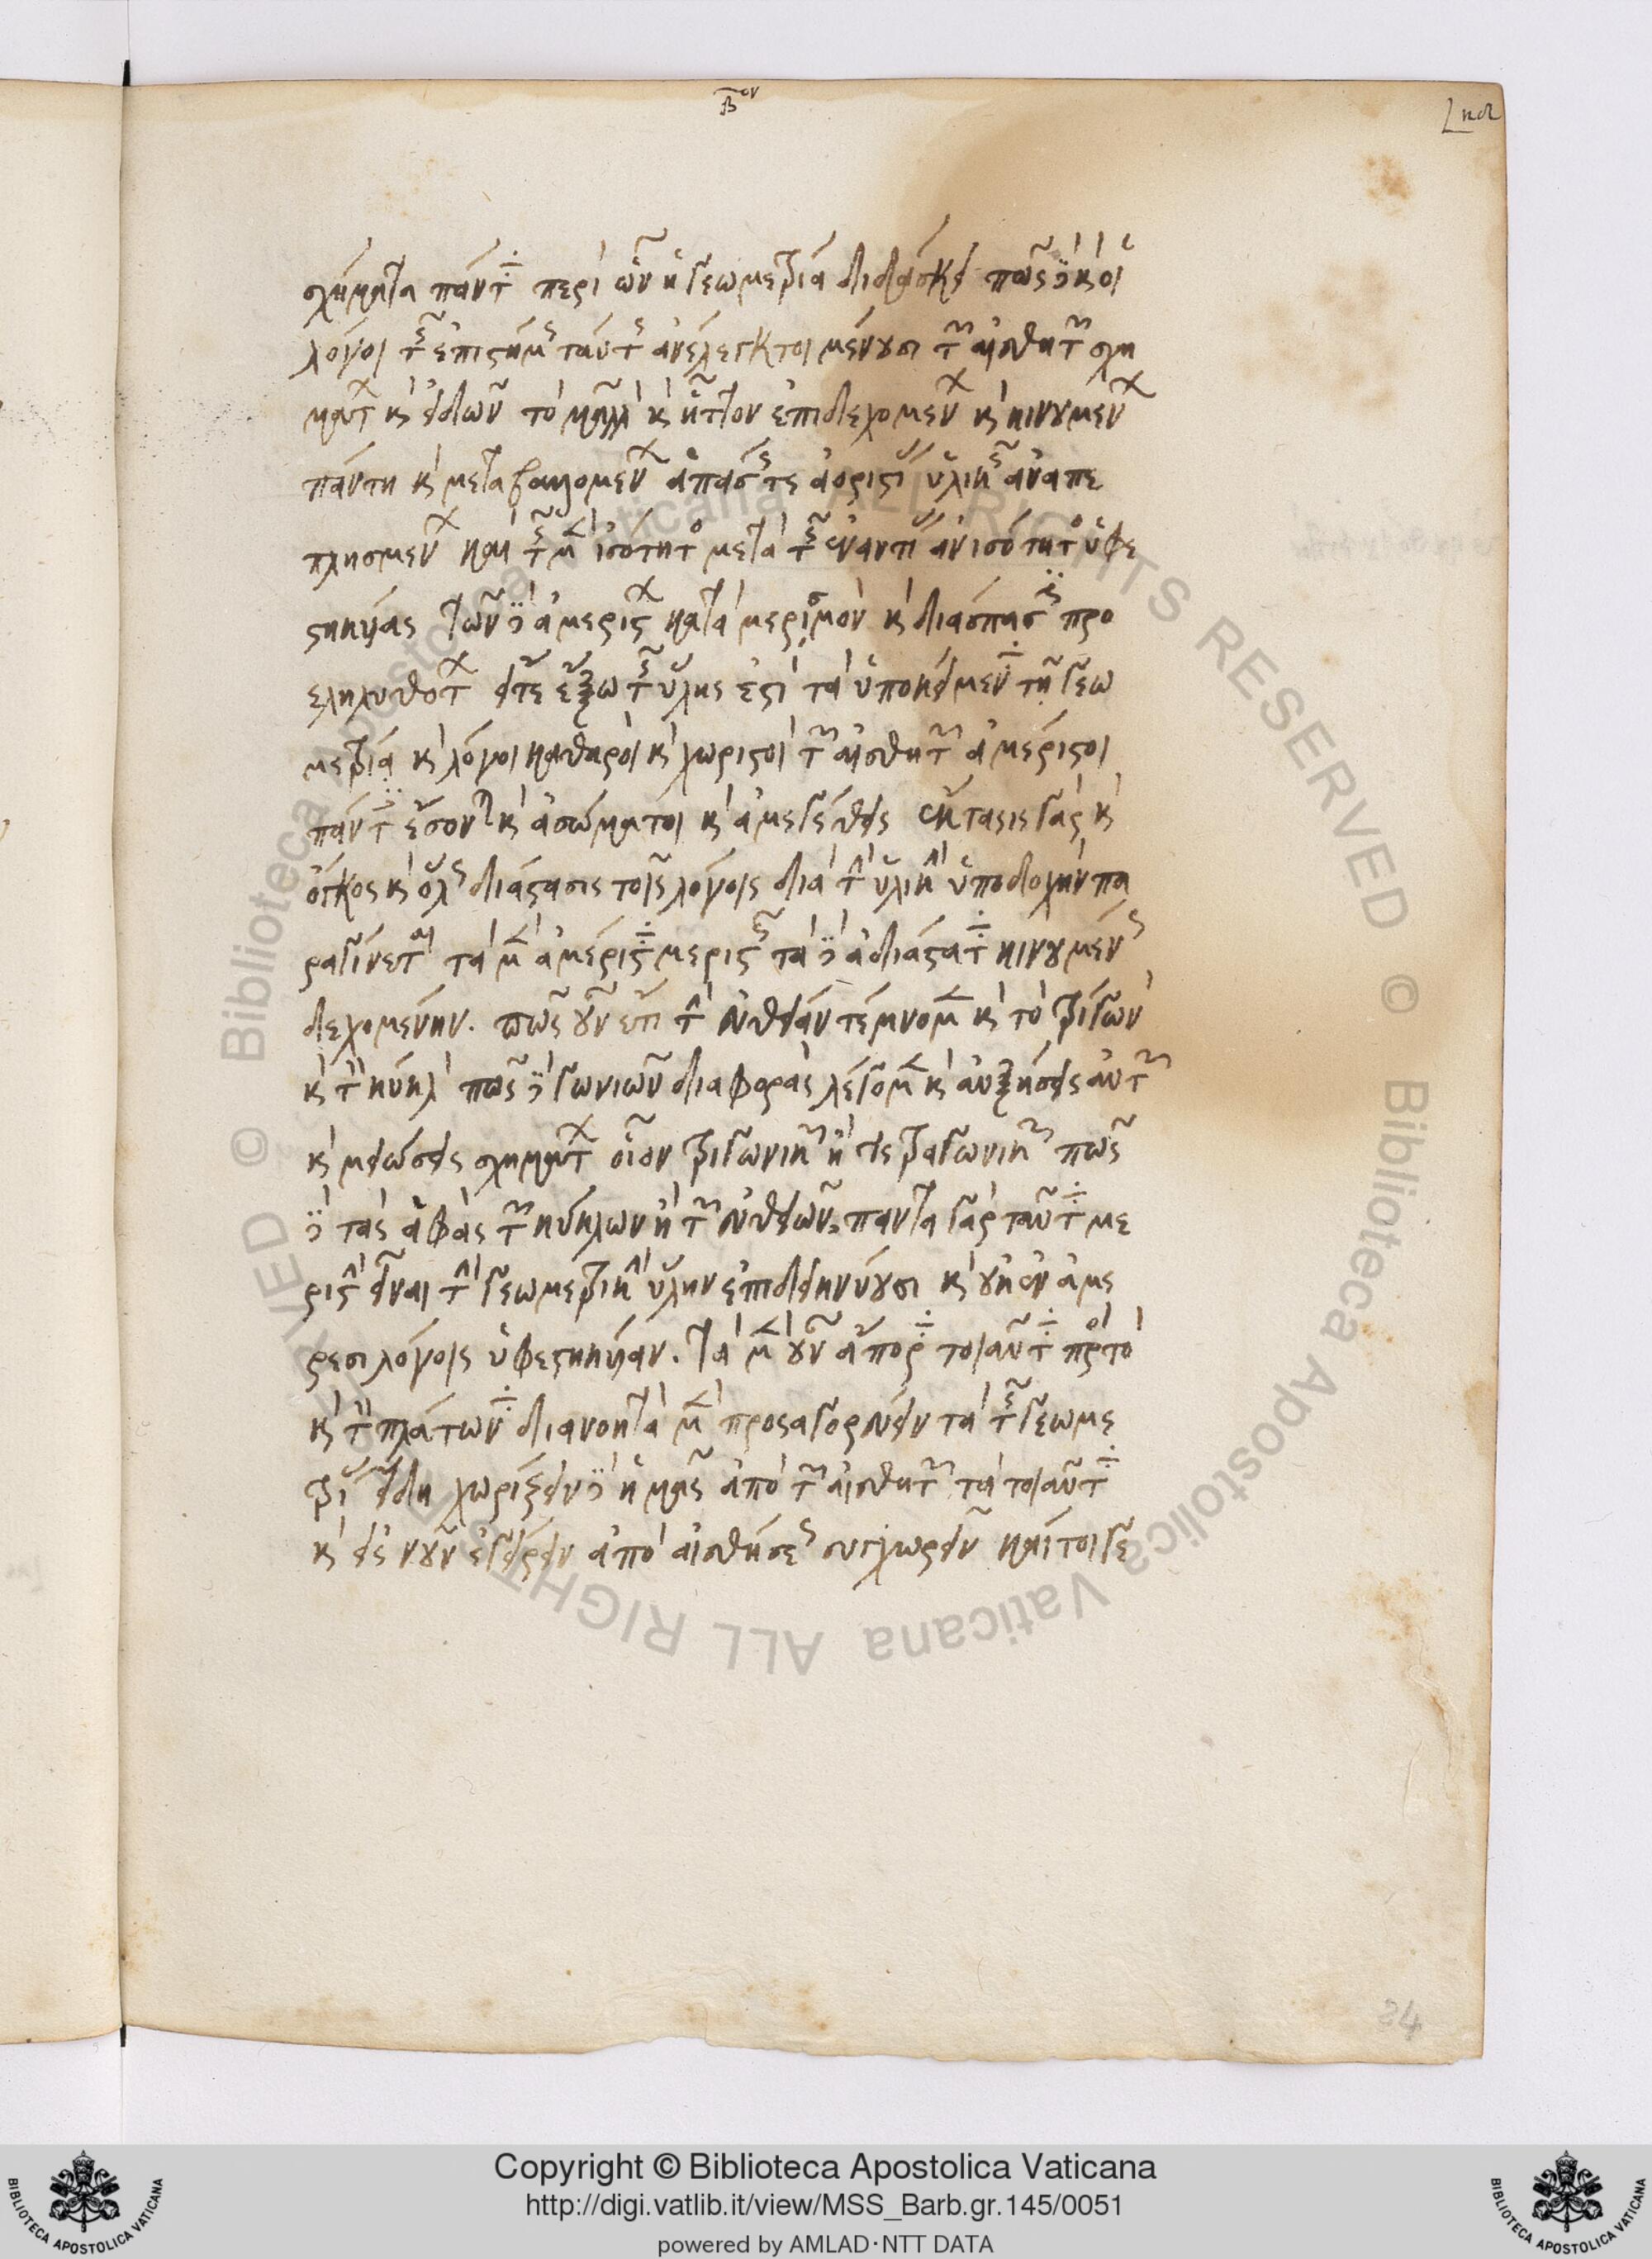 β ον
κδ
σχήματα πάντα περὶ ὧν ἡ γεωμετρία διδάσκει πῶς δὲ καὶ οἱ
λόγοι τῆς ἐπιστήμης ταύτης ἀνέλεγκτοι μένουσι τῶν αἰσθητῶν σχη
μάτων καὶ εἰδῶν τὸ μᾶλλον καὶ ἧττον ἐπιδεχομένων καὶ κινουμένων
πάντη καὶ μεταβαλλομένων ἁπάσης τε ἀοριστίας ὑλικῆς ἀναπε
πλησμένων καὶ τῆς μὲν ἰσότητος μετὰ τῆς ἐναντίας ἀνισότητος ὑφε
στηκυίας τῶν δὲ ἀμερίστων κατὰ μερισμὸν καὶ διάσπασιν προ
εληλυθότων εἴτε ἔξω τῆς ὕλης ἐστὶ τὰ ὑποκείμενα τῇ γεω
μετρίᾳ καὶ λόγοι καθαροὶ καὶ χωριστοὶ τῶν αἰσθητῶν ἀμέριστοι
πάντες ἔσονται καὶ ἀσώματοι καὶ ἀμεγέθεις ἔκτασις γὰρ καὶ
ὄγκος καὶ ὅλως διάστασις τοῖς λόγοις διὰ τὴν ὑλικὴν ὑποδοχὴν πα
ραγίνεται τὰ μὲν ἀμέριστα μεριστῶς τὰ δὲ ἀδιάστατα κινουμένως
δεχομένην. πῶς οὖν ἔτι τὴν εὐθεῖαν τέμνομεν καὶ τὸ τρίγωνον
καὶ τὸν κύκλον πῶς δὲ γωνιῶν διαφορὰς λέγομεν καὶ αὐξήσεις αὐτῶν
καὶ μειώσεις σχημάτων οἷον τριγωνικῶν ἢ τετραγωνικῶν πῶς
δὲ τὰς ἁφὰς τῶν κύκλων ἢ τῶν εὐθειῶν; πάντα γὰρ ταῦτα με
ριστὴν εἶναι τὴν γεωμετρικὴν ὕλην ἐπιδεικνύουσι καὶ οὐκ ἐν ἀμε
ρέσι λόγοις ὑφεστηκυῖαν. τὰ μὲν οὖν ἄπορα τοιαῦτα πρὸς τὸ
καὶ τὸν πλάτωνα διανοητὰ μὲν προσαγορεύειν τὰ τῆς γεωμε
τρίας εἴδη χωρίζειν δὲ ἡμᾶς ἀπὸ τῶν αἰσθητῶν τὰ τοιαῦτα
καὶ εἰς νοῦν ἐγείρειν ἀπὸ αἰσθήσεως συγχωρεῖν καίτοι γε
84
Copyright © Biblioteca Apostolica Vaticana
http://digi.vatlib.it/view/MSS_Barb.gr.145/0051
powered by AMLAD·NTT DATA
BIBLIOTECA APOSTOLICA VATICANA
BIBLIOTECA APOSTOLICA VATICANA
© Biblioteca Apostolica Vaticana ALL RIGHTS RESERVED © Biblioteca Apostolica Vaticana ALL RIGHTS RESERVED